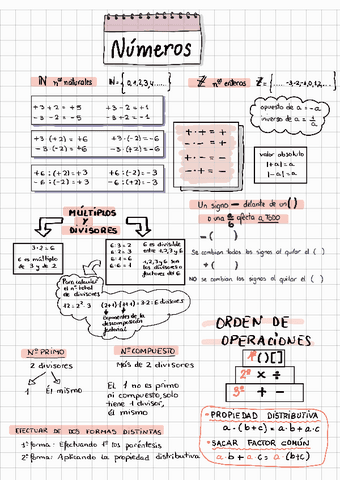 Números
ℕ nº naturales ℕ={0,1,2,3,4,......}
ℤ nº enteros ℤ={.....-3,-2,-1,0,1,2,...}
+3+2=+5 +3-2=+1
-3-2=-5 -3+2=-1
+3·(+2)=+6 +3·(-2)=-6
-3·(-2)=+6 -3·(+2)=-6
+6:(+2)=+3 +6:(-2)=-3
-6:(-2)=+3 -6:(+2)=-3
+·+=+
+·-=-
-·+=-
-·-=+
opuesto de a=-a
inverso de a=1/a
valor absoluto
|+a|=a
|-a|=a
Un signo - delante de un ( )
o una a/b afecta a TODO
-( )
Se cambian todos los signos al quitar el ( )
+( )
NO se cambian los signos al quitar el ( )
MÚLTIPLOS
Y
DIVISORES
3·2=6
6 es múltiplo
de 3 y de 2
6:3=2
6:2=3
6:1=6
6:6=1
6 es divisible
entre 1,2,3 y 6
1,2,3,y 6 son
los divisores o
factores del 6
Para calcular
el nº total
de divisores
12=2²·3 (2+1)·(1+1)=3·2=6 divisores
Exponentes de la
descomposición
factorial
Nº PRIMO
2 divisores
1 Él mismo
Nº COMPUESTO
Más de 2 divisores
El 1 no es primo
ni compuesto, solo
tiene 1 divisor,
él mismo
ORDEN DE
OPERACIONES
1º ( ) [ ]
2º × ÷
3º + -
EFECTUAR DE DOS FORMAS DISTINTAS
1ª forma: Efectuando 1º los paréntesis
2ª forma: Aplicando la propiedad distributiva
· PROPIEDAD DISTRIBUTIVA
a·(b+c)=a·b+a·c
· SACAR FACTOR COMÚN
a·b+a·c=a·(b+c)